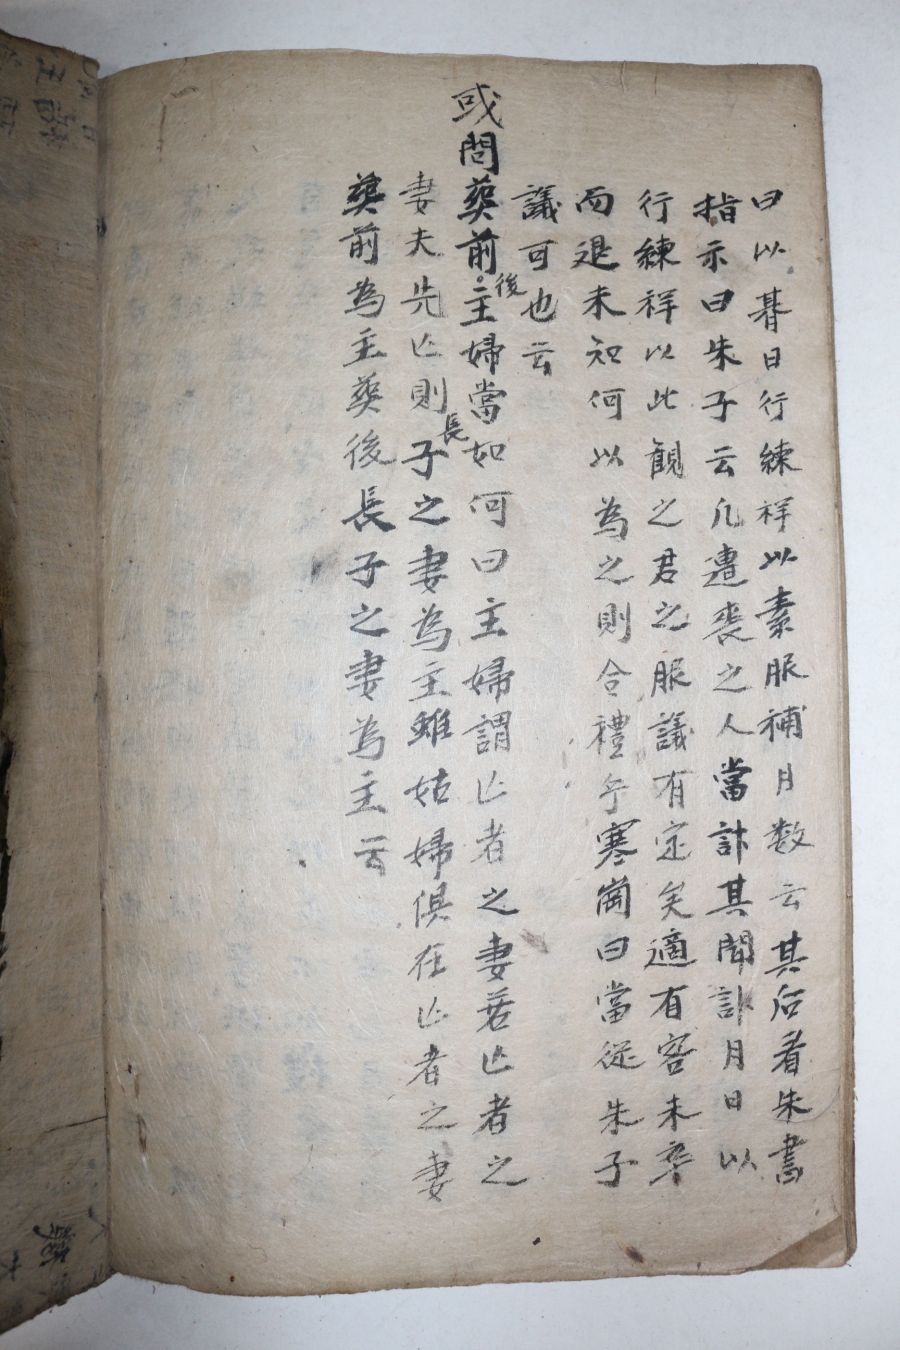 曰以朞日行練祥以素服補月数云其后看朱書
指示曰朱子云凡遭喪之人當計其聞訃月日以
行練祥以此觀之君之服議有定矣適有客未卒
而退未知何以為之則合禮乎寒岡曰當從朱子
議可也云
或問葬前後主婦當如何曰主婦謂亡者之妻若亡者之
妻夫先亡則長子之妻為主雖姑婦俱在亡者之妻
葬前為主葬後長子之妻為主云